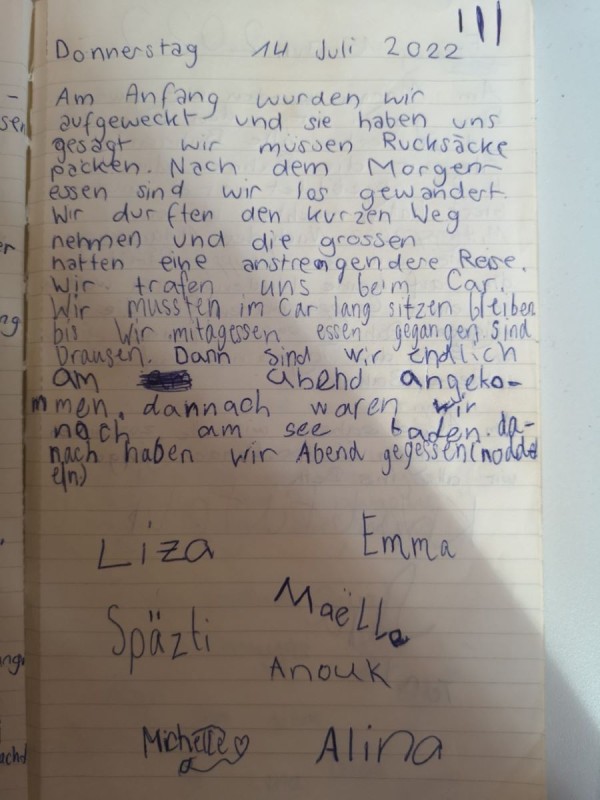 Donnerstag 14 Juli 2022
Am Anfang wurden wir
aufgeweckt und sie haben uns
gesagt wir müssen Rucksäcke
packen. Nach dem Morgen-
essen sind wir los gewandert.
Wir durften den kurzen Weg
nehmen und die grossen
hatten eine anstrengendere Reise.
Wir trafen uns beim Car.
Wir mussten im Car lang sitzen bleiben
bis wir mitagessen essen gegangen sind
Drausen. Dann sind wir endlich
am abend angeko-
mmen. dannach waren wir
noch am see baden. da-
nach haben wir Abend gegessen (nodd
eln)
Liza Emma
Maëlle
Späzti
Anouk
Michelle Alina